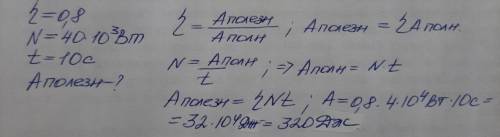 η=0,8
N=40·10³Вт
t=10с
Аполезн-?
η = Аполезн / Аполн ; Аполезн = ηАполн.
N = Аполн / t ; => Аполн = Nt
Аполезн = ηNt ; А=0,8·4·10⁴Вт·10с=
=32·10⁴Дж=320